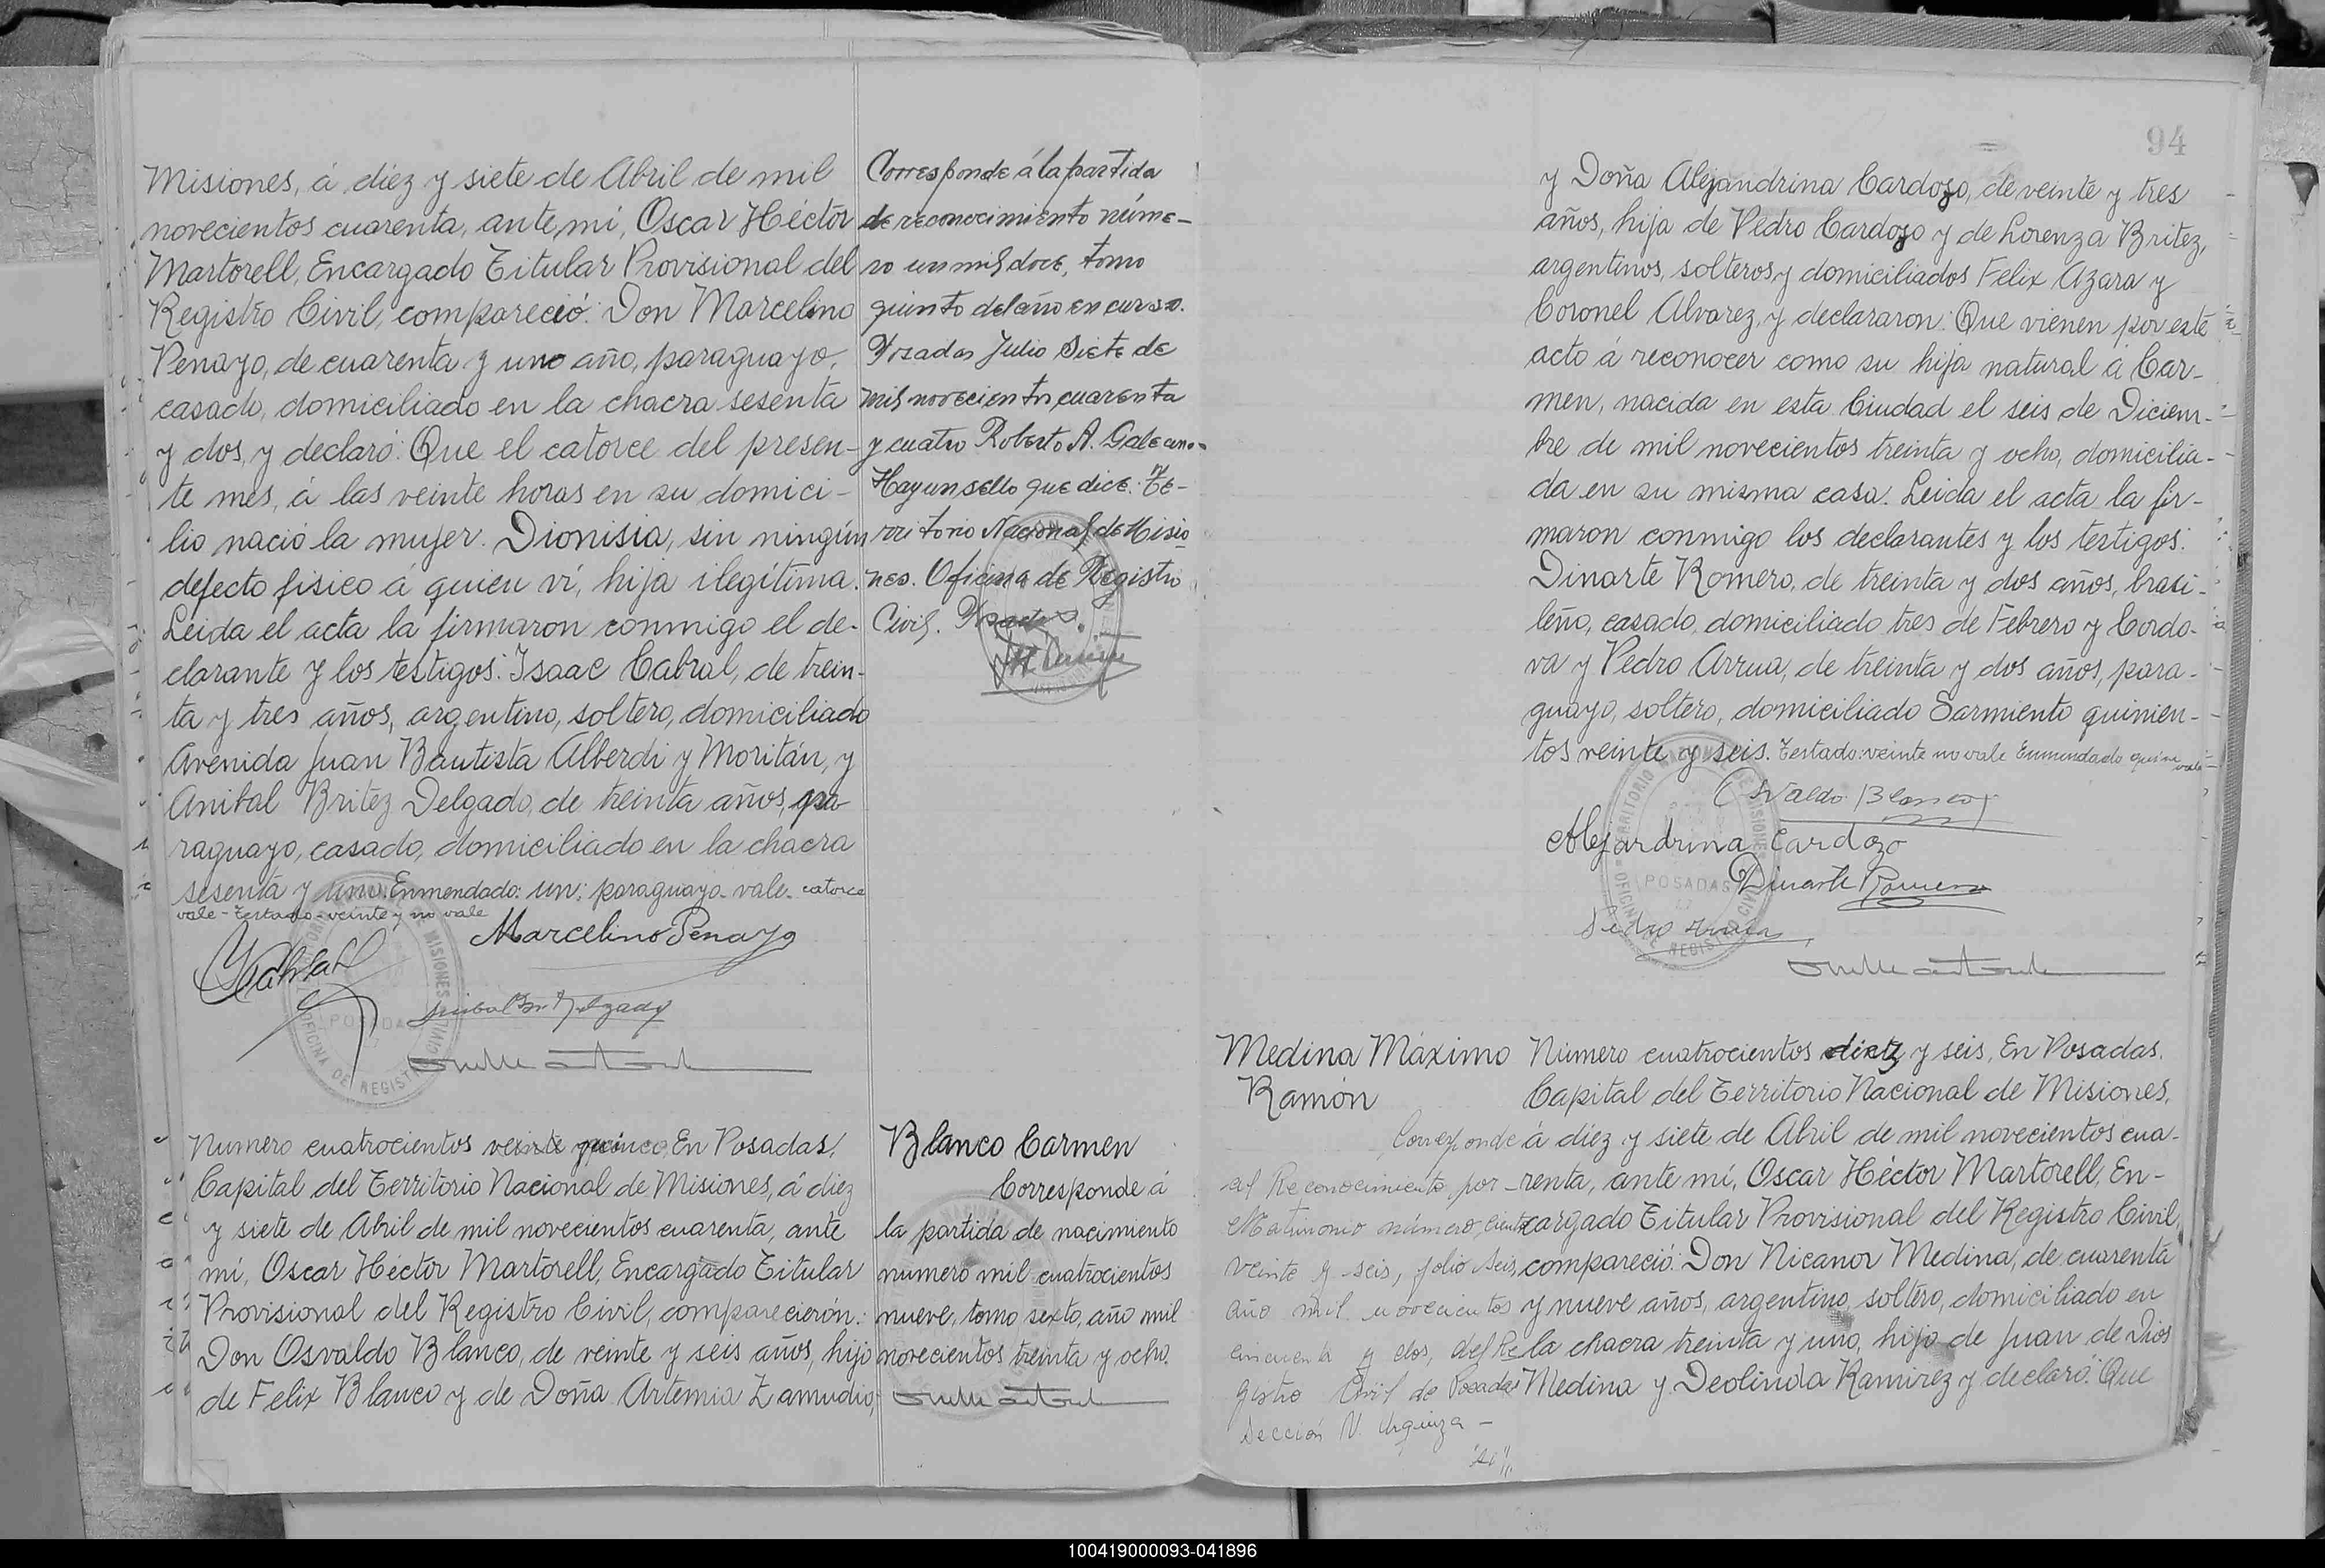 Misiones, á diez y siete de Abril de mil
novecientos cuarenta, ante mí, Oscar Héctor
Martorell, Encargado Titular Provisional del
Registro Civil, compareció: Don Marcelino
Penayo, de cuarenta y uno año, paraguayo,
casado, domiciliado en la chacra sesenta
y dos, y declaró: Que el catorce del presen-
te mes, á las veinte horas en su domici-
lio nació la mujer. Dionisia, sin ningún
defecto fisico á quien ví, hija ilegítima.
Leida el acta la firmaron conmigo el de-
clarante y los testigos: Isaac Cabral, de trein-
ta y tres años, argentino, soltero, domiciliado
Avenida Juan Bautista Alberdi y Moritán, y
Anibal Britez Delgado, de treinta años, pa-
raguayo, casado, domiciliado en la chacra
sesenta y uno. Enmendado: un: paraguayo. vale. catorce
vale - Testado - veinte y no vale
Marcelino Penayo
POSADAS
OFICINA DE REGISTRO CIVIL
MISIONES
Corresponde á la partida
de reconocimiento núme-
ro un mil doce, tomo
quinto del año en curso.
Posadas Julio Siete de
mil novecientos cuarenta
y cuatro Roberto A. Galeano.
Hay un sello que dice: Te-
rritorio Nacional de Misio
nes. Oficina de Registro
Civil. Posadas.
Numero cuatrocientos veinte quince, En Posadas,
Capital del Territorio Nacional de Misiones, á diez
y siete de Abril de mil novecientos cuarenta, ante
mí, Oscar Héctor Martorell, Encargado Titular
Provisional del Registro Civil, comparecierón:
Don Osvaldo Blanco, de veinte y seis años, hijo
de Felix Blanco y de Doña Artemia Zamudio,
Blanco Carmen
Corresponde á
la partida de nacimiento
numero mil cuatrocientos
nueve, tomo sexto, año mil
novecientos treinta y ocho.
94
y Doña Alejandrina Cardozo, de veinte y tres
años, hija de Pedro Cardozo y de Lorenza Britez,
argentinos, solteros y domiciliados Felix Azara y
Coronel Alvarez, y declararon: Que vienen por este
acto á reconocer como su hija natural a Car-
men, nacida en esta Ciudad el seis de Diciem-
bre de mil novecientos treinta y ocho, domicilia-
da en su misma casa. Leida el acta la fir-
maron conmigo los declarantes y los testigos:
Dinarte Romero, de treinta y dos años, brasi-
leño, casado, domiciliado tres de Febrero y Cordo-
va y Pedro Arrua, de treinta y dos años, para-
guayo, soltero, domiciliado Sarmiento quinien-
tos veinte y seis. Testado: veinte no vale Enmendado quince vale
Osvaldo Blanco
Alejandrina Cardozo
Dinarte Romero
Pedro Arrua
POSADAS
Medina Máximo
Ramón
Corresponde
al Reconocimiento por
Matrimonio número ciento
veinte y seis, folio seis
año mil novecientos
cincuenta y dos, del Re
gistro Civil de Posadas
Sección N. Urquiza -
Número cuatrocientos diez y seis, En Posadas,
Capital del Territorio Nacional de Misiones,
á diez y siete de Abril de mil novecientos cua-
renta, ante mí, Oscar Héctor Martorell, En-
cargado Titular Provisional del Registro Civil,
compareció: Don Nicanor Medina, de cuarenta
y nueve años, argentino, soltero, domiciliado en
la chacra treinta y uno, hijo de Juan de Dios
Medina y Deolinda Ramirez y declaró: Que
100419000093-041896